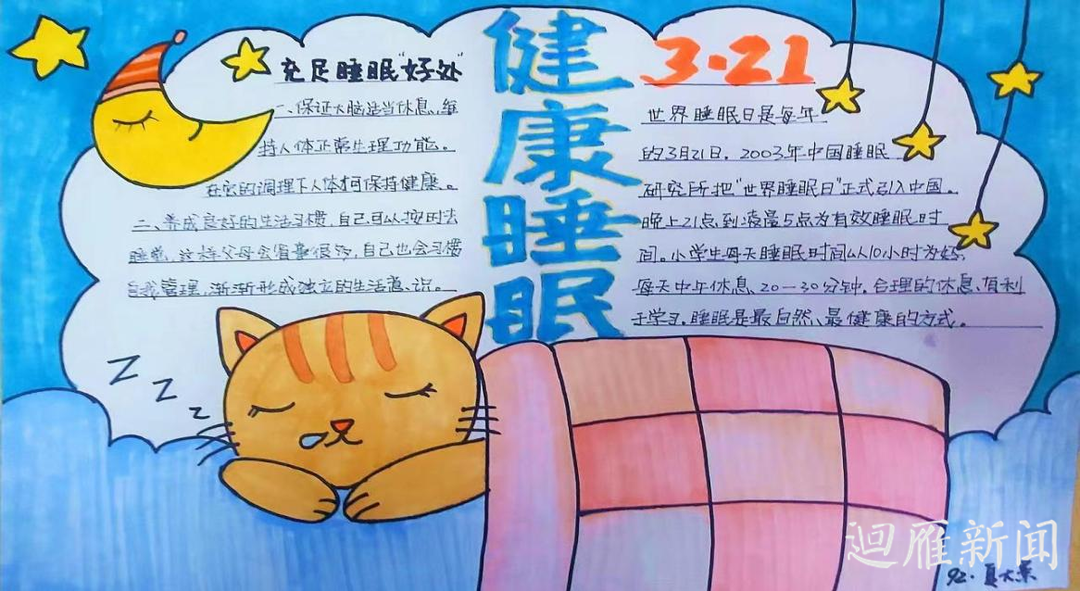 健康睡眠
充足睡眠"好处"
一、保证大脑适当休息，维
持人体正常生理功能。
在它的调理下人体才可保持健康。
二、养成良好的生活习惯，自己可以按时去
睡觉，这样父母会省事很多，自己也会习惯
自我管理，渐渐形成独立的生活意、识。
3·21
世界睡眠日是每年
的3月21日，2003年中国睡眠
研究所把"世界睡眠日"正式引入中国。
晚上21点到凌晨5点为有效睡眠时
间。小学生每天睡眠时间以10小时为好，
每天中午休息、20—30分钟，合理的休息、有利
于学习，睡眠是最自然、最健康的方式。
z z z
迴雁新闻
92·夏大